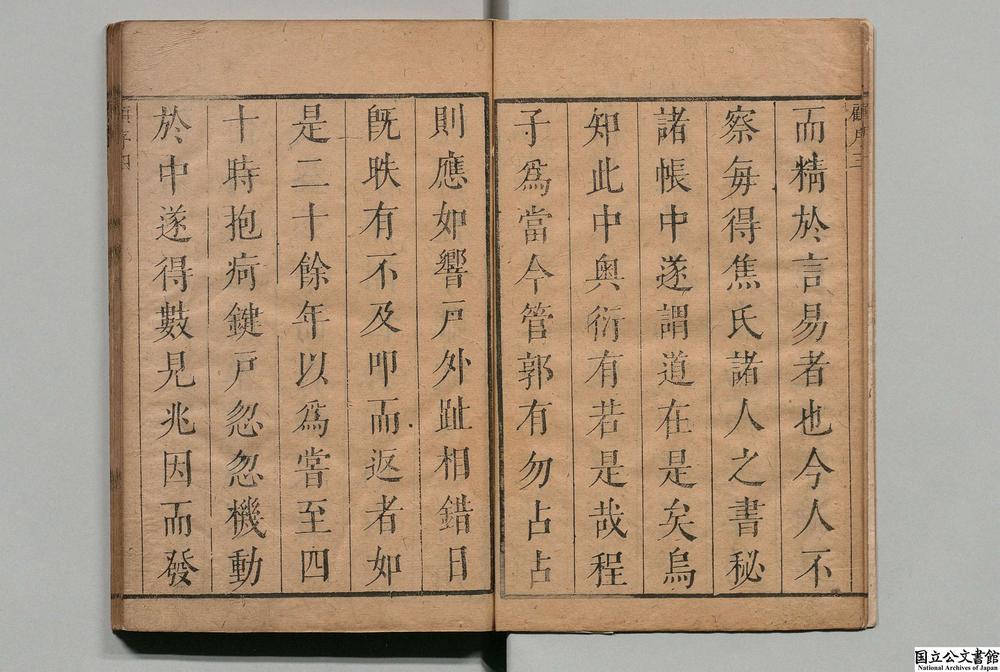 顧序三
而精於言易者也今人不
察每得焦氏諸人之書秘
諸帳中遂謂道在是矣烏
知此中奧衍有若是哉程
子爲當今管郭有勿占占
則應如響戸外趾相錯日
旣昳有不及叩而返者如
是二十餘年以爲嘗至四
十時抱疴鍵戸忽忽機動
於中遂得數見兆因而發
顧序四
国立公文書館
National Archives of Japan